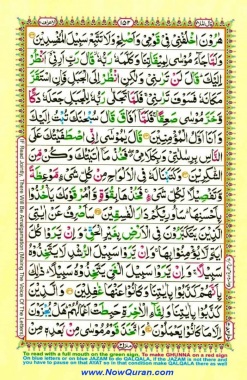 ۱۵۳
هٰرُوْنَ اخْلُفْنِيْ فِيْ قَوْمِيْ وَاَصْلِحْ وَلَا تَتَّبِعْ سَبِيْلَ الْمُفْسِدِيْنَ
وَلَمَّا جَآءَ مُوْسٰى لِمِيْقَاتِنَا وَكَلَّمَهٗ رَبُّهٗ قَالَ رَبِّ اَرِنِيْٓ اَنْظُرْ
اِلَيْكَ قَالَ لَنْ تَرٰىنِيْ وَلٰكِنِ انْظُرْ اِلَى الْجَبَلِ فَاِنِ اسْتَقَرَّ
مَكَانَهٗ فَسَوْفَ تَرٰىنِيْ فَلَمَّا تَجَلّٰى رَبُّهٗ لِلْجَبَلِ جَعَلَهٗ دَكًّا
وَّخَرَّ مُوْسٰى صَعِقًا فَلَمَّآ اَفَاقَ قَالَ سُبْحٰنَكَ تُبْتُ اِلَيْكَ
وَاَنَا اَوَّلُ الْمُؤْمِنِيْنَ قَالَ يٰمُوْسٰٓى اِنِّى اصْطَفَيْتُكَ عَلَى
النَّاسِ بِرِسٰلٰتِيْ وَبِكَلَامِيْ فَخُذْ مَآ اٰتَيْتُكَ وَكُنْ مِّنَ
الشّٰكِرِيْنَ وَكَتَبْنَا لَهٗ فِى الْاَلْوَاحِ مِنْ كُلِّ شَيْءٍ مَّوْعِظَةً
وَّتَفْصِيْلًا لِّكُلِّ شَيْءٍ فَخُذْهَا بِقُوَّةٍ وَّاْمُرْ قَوْمَكَ يَاْخُذُوْا
بِاَحْسَنِهَا سَاُورِيْكُمْ دَارَ الْفٰسِقِيْنَ سَاَصْرِفُ عَنْ اٰيٰتِيَ
الَّذِيْنَ يَتَكَبَّرُوْنَ فِى الْاَرْضِ بِغَيْرِ الْحَقِّ وَاِنْ يَّرَوْا
كُلَّ اٰيَةٍ لَّا يُؤْمِنُوْا بِهَا وَاِنْ يَّرَوْا سَبِيْلَ الرُّشْدِ لَا يَتَّخِذُوْهُ
سَبِيْلًا وَاِنْ يَّرَوْا سَبِيْلَ الْغَيِّ يَتَّخِذُوْهُ سَبِيْلًا ذٰلِكَ
بِاَنَّهُمْ كَذَّبُوْا بِاٰيٰتِنَا وَكَانُوْا عَنْهَا غٰفِلِيْنَ وَالَّذِيْنَ
كَذَّبُوْا بِاٰيٰتِنَا وَلِقَآءِ الْاٰخِرَةِ حَبِطَتْ اَعْمَالُهُمْ هَلْ يُجْزَوْنَ
اِلَّا مَا كَانُوْا يَعْمَلُوْنَ وَاتَّخَذَ قَوْمُ مُوْسٰى مِنْۢ بَعْدِهٖ مِنْ
To read with a full mouth on the green sign. To make GHUNNA on a red sign
On blue letters or on blue JAZAM to do QALQALA, if the JAZAM is not there and
you have to pause on that AYAT so in that condition make QALQALA there as well
www.NowQuran.com